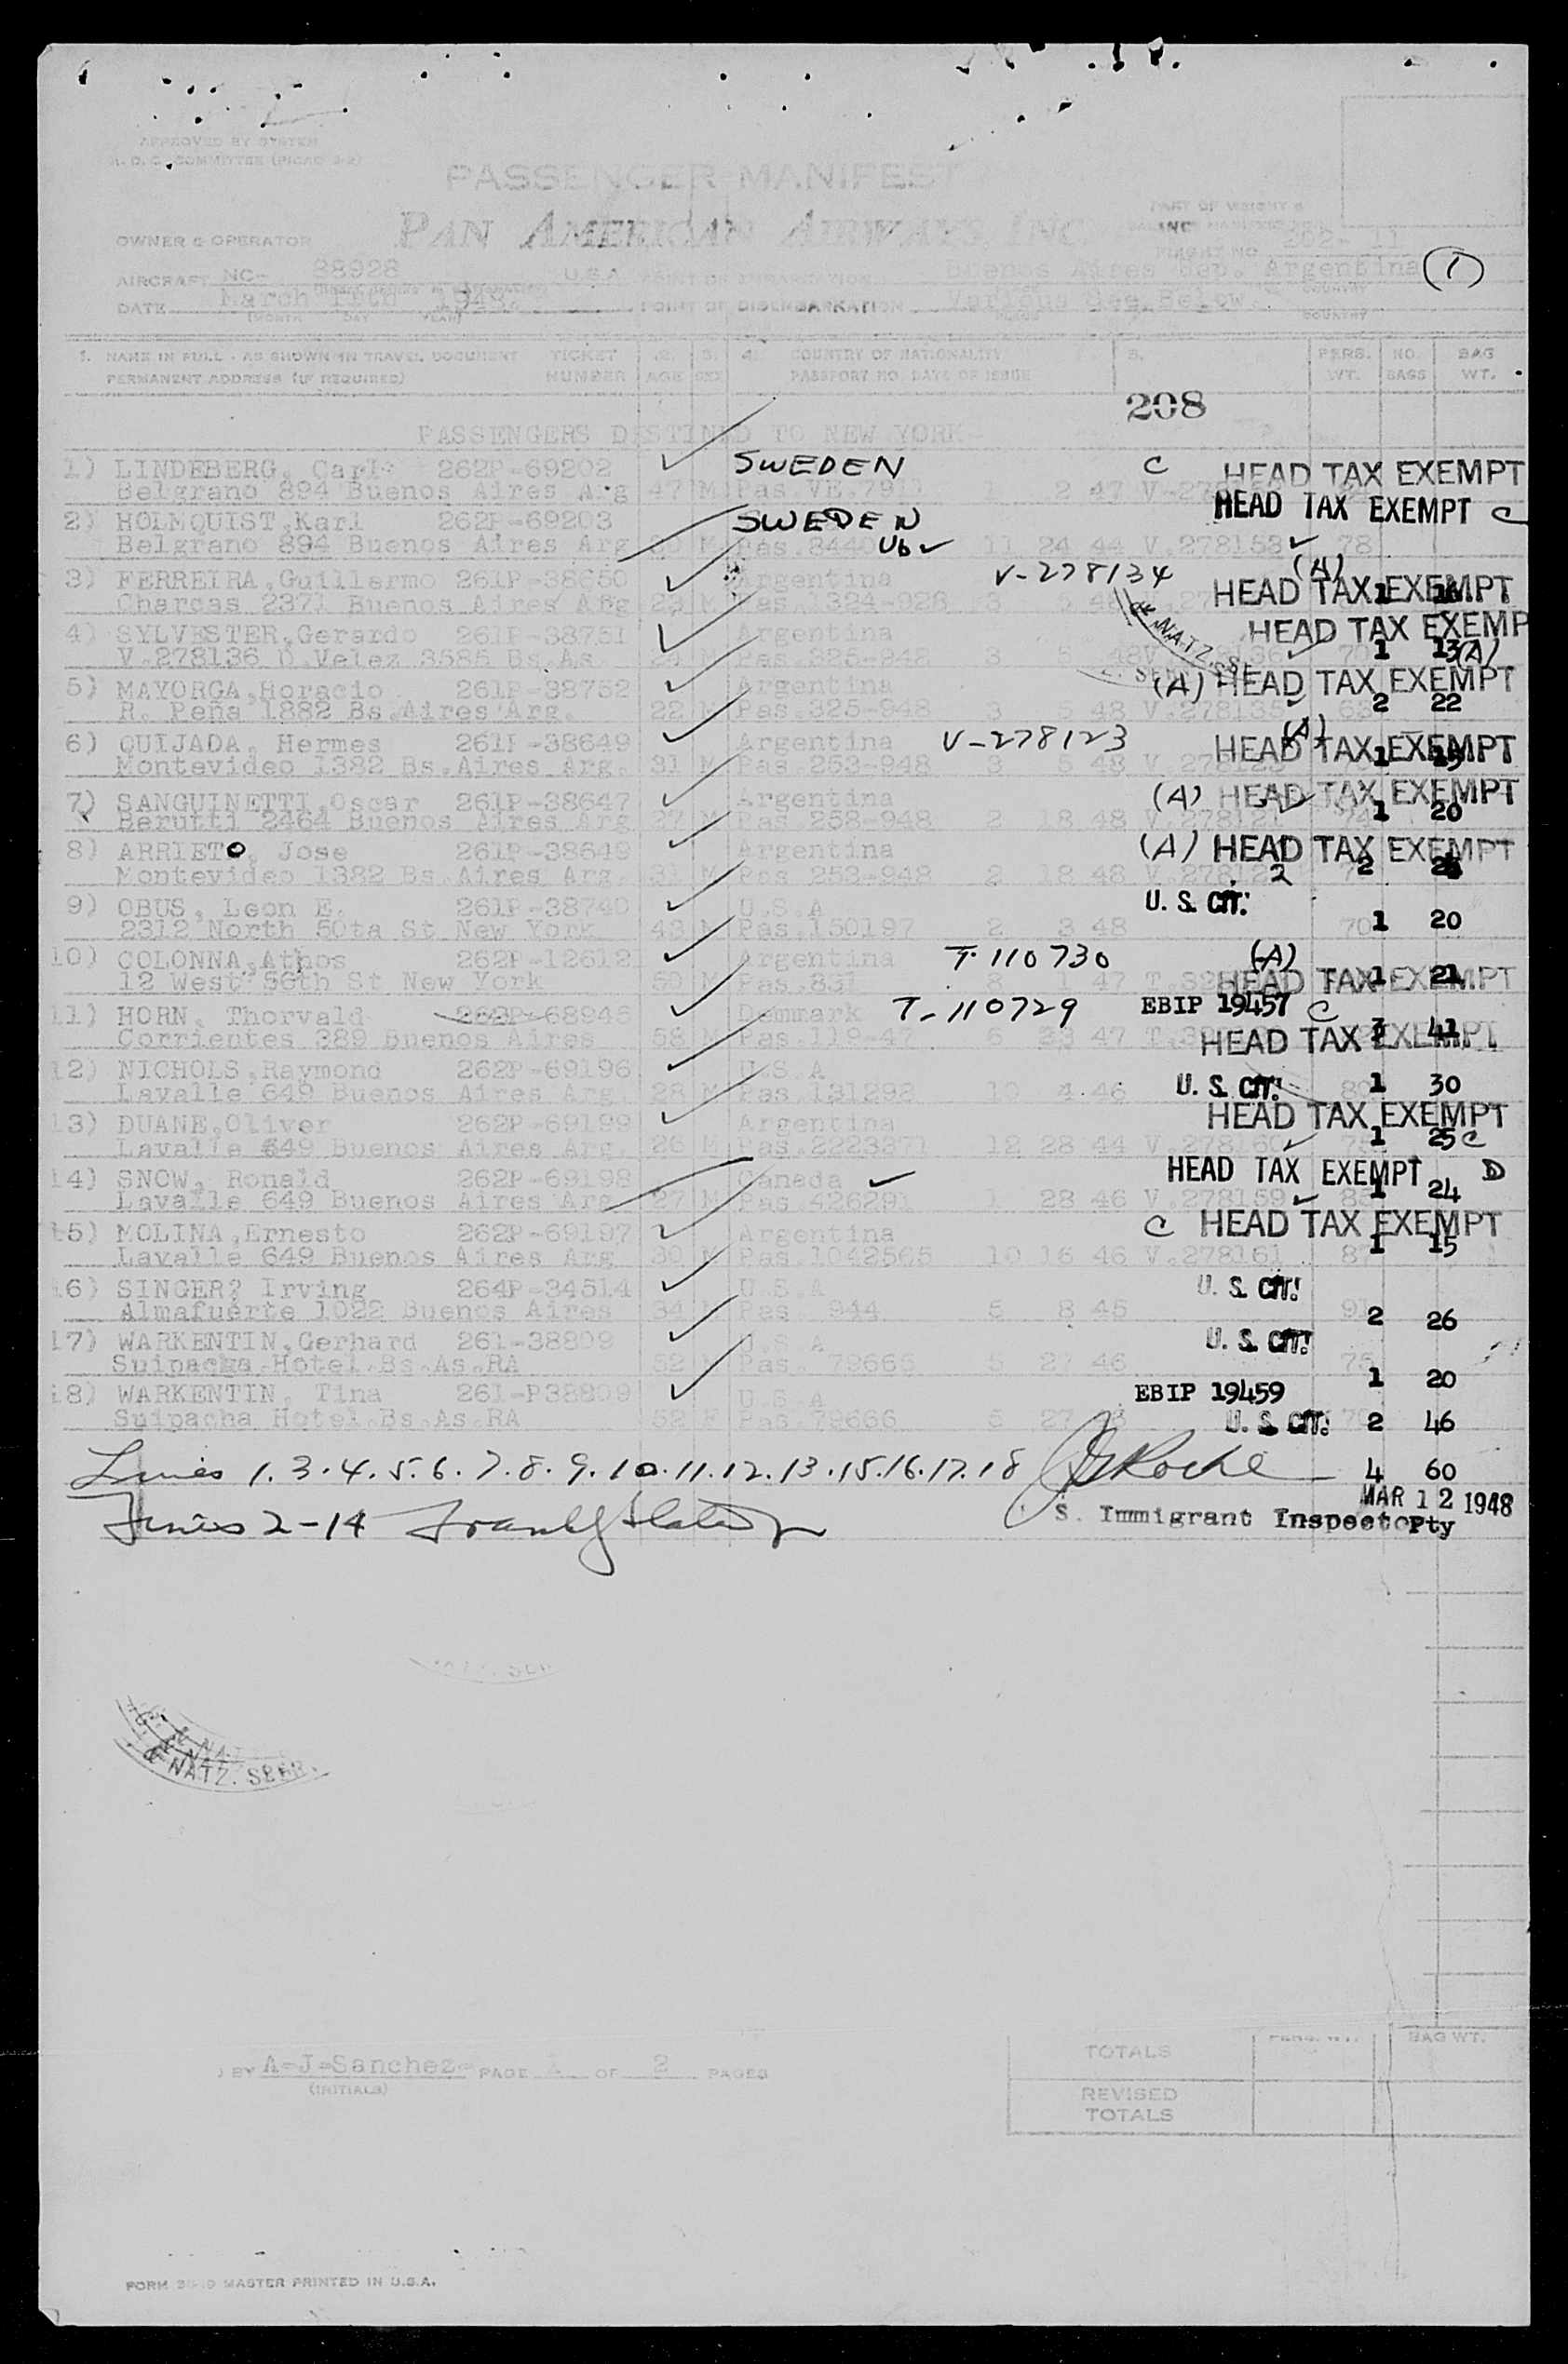 APPROVED BY SYSTEM
COMMITTEE
PASSENGER MANIFEST
PAN AMERICAN AIRWAYS, INC.
PART OF WEIGHT &
OWNER & OPERATOR
FLIGHT NO.
AIRCRAFT NC- 88928 U.S.A. Buenos Aires dep. Argentina (1)
DATE March 11th 1948. POINT OF DISEMBARKATION Various See Below
(MONTH DAY YEAR) COUNTRY
1. NAME IN FULL - AS SHOWN IN TRAVEL DOCUMENT TICKET 2. 3. 4. COUNTRY OF NATIONALITY 5. PERS. NO. BAG
PERMANENT ADDRESS (IF REQUIRED) NUMBER AGE SEX PASSPORT NO. DATE OF ISSUE WT. BAGS WT.
208
PASSENGERS DESTINED TO NEW YORK-
1) LINDEBERG, Carl 262P-69202 SWEDEN C HEAD TAX EXEMPT
Belgrano 894 Buenos Aires Arg 47 M Pas.VE. 1 2 47
HEAD TAX EXEMPT C
2) HOLMQUIST,Karl 262P-69203 SWEDEN
Belgrano 894 Buenos Aires Arg M Pas. 11 24 44 V.278158 78
3) FERREIRA,Guillermo 261P-38650 Argentina V-278134 (A)
Charcas 2371 Buenos Aires Arg M Pas.1324-928 HEAD TAX EXEMPT 1
4) SYLVESTER,Gerardo 261P-38751 Argentina HEAD TAX EXEMP
V.278136 D.Velez 3585 Bs As M Pas.325-948 3 5 48 1 13 (A)
& NATZ. SE
5) MAYORGA,Horacio 261P-38752 Argentina (A) HEAD TAX EXEMPT
R. Peña 1882 Bs.Aires Arg. 22 M Pas.325-948 3 5 48 V.278135 2 22
6) QUIJADA, Hermes 261P-38649 Argentina V-278123 (A)
Montevideo 1382 Bs.Aires Arg. 31 M Pas 253-948 3 5 48 HEAD TAX EXEMPT 1
7) SANGUINETTI,Oscar 261P-38647 Argentina (A) HEAD TAX EXEMPT
Berutti 2464 Buenos Aires Arg M Pas 258-948 2 18 48 1 20
8) ARRIETO, Jose 261P-38649 Argentina (A) HEAD TAX EXEMPT
Montevideo 1382 Bs.Aires Arg. M Pas 253-948 2 18 48 2
9) OBUS, Leon E. 261P-38740 U.S.A U.S. CIT.
2312 North 50ta St New York 43 M Pas.150197 2 3 48 70 1 20
10) COLONNA,Athos 262P-12612 Argentina T-110730 (A)
12 West 56th St New York M Pas.831 8 1 47 HEAD TAX EXEMPT 1 21
11) HORN, Thorvald 262P-68945 Demmark T-110729 EBIP 19457 C
Corrientes 389 Buenos Aires 58 M Pas.119-47 HEAD TAX EXEMPT 41
12) NICHOLS,Raymond 262P-69196 U.S.A U.S. CIT. 1 30
Lavalle 649 Buenos Aires Arg. 28 M Pas.131298 10 4 46
13) DUANE,Oliver 262P-69199 Argentina HEAD TAX EXEMPT
Lavalle 649 Buenos Aires Arg. M Pas.2223371 12 28 44 1 25 C
14) SNOW, Ronald 262P-69198 Canada HEAD TAX EXEMPT D
Lavalle 649 Buenos Aires Arg M Pas.426291 1 28 46 V.278159 1 24
15) MOLINA,Ernesto 262P-69197 Argentina C HEAD TAX EXEMPT
Lavalle 649 Buenos Aires Arg 30 M Pas.1042565 10 16 46 V.278161 1 15
16) SINGER? Irving 264P-34514 U.S.A U.S. CIT.
Almafuerte 1022 Buenos Aires 34 M Pas 944 5 8 45 2 26
17) WARKENTIN,Gerhard 261-38809 U.S.A U.S. CIT.
Suipacha Hotel.Bs.As.RA 52 M Pas. 79665 5 27 46 1 20
18) WARKENTIN, Tina 261-P38809 U.S.A EBIP 19459
Suipacha Hotel.Bs.As.RA 52 F Pas.79666 5 27 U.S. CIT. 2 46
Lines 1.3.4.5.6.7.8.9.10.11.12.13.15.16.17.18 Roche 4 60
Lines 2-14 S. Immigrant Inspector MAR 12 1948
Pty
& NATZ. SERV.
BY A-J-Sanchez- PAGE OF 2 PAGES
(INITIALS)
TOTALS BAG WT.
REVISED
TOTALS
FORM MASTER PRINTED IN U.S.A.